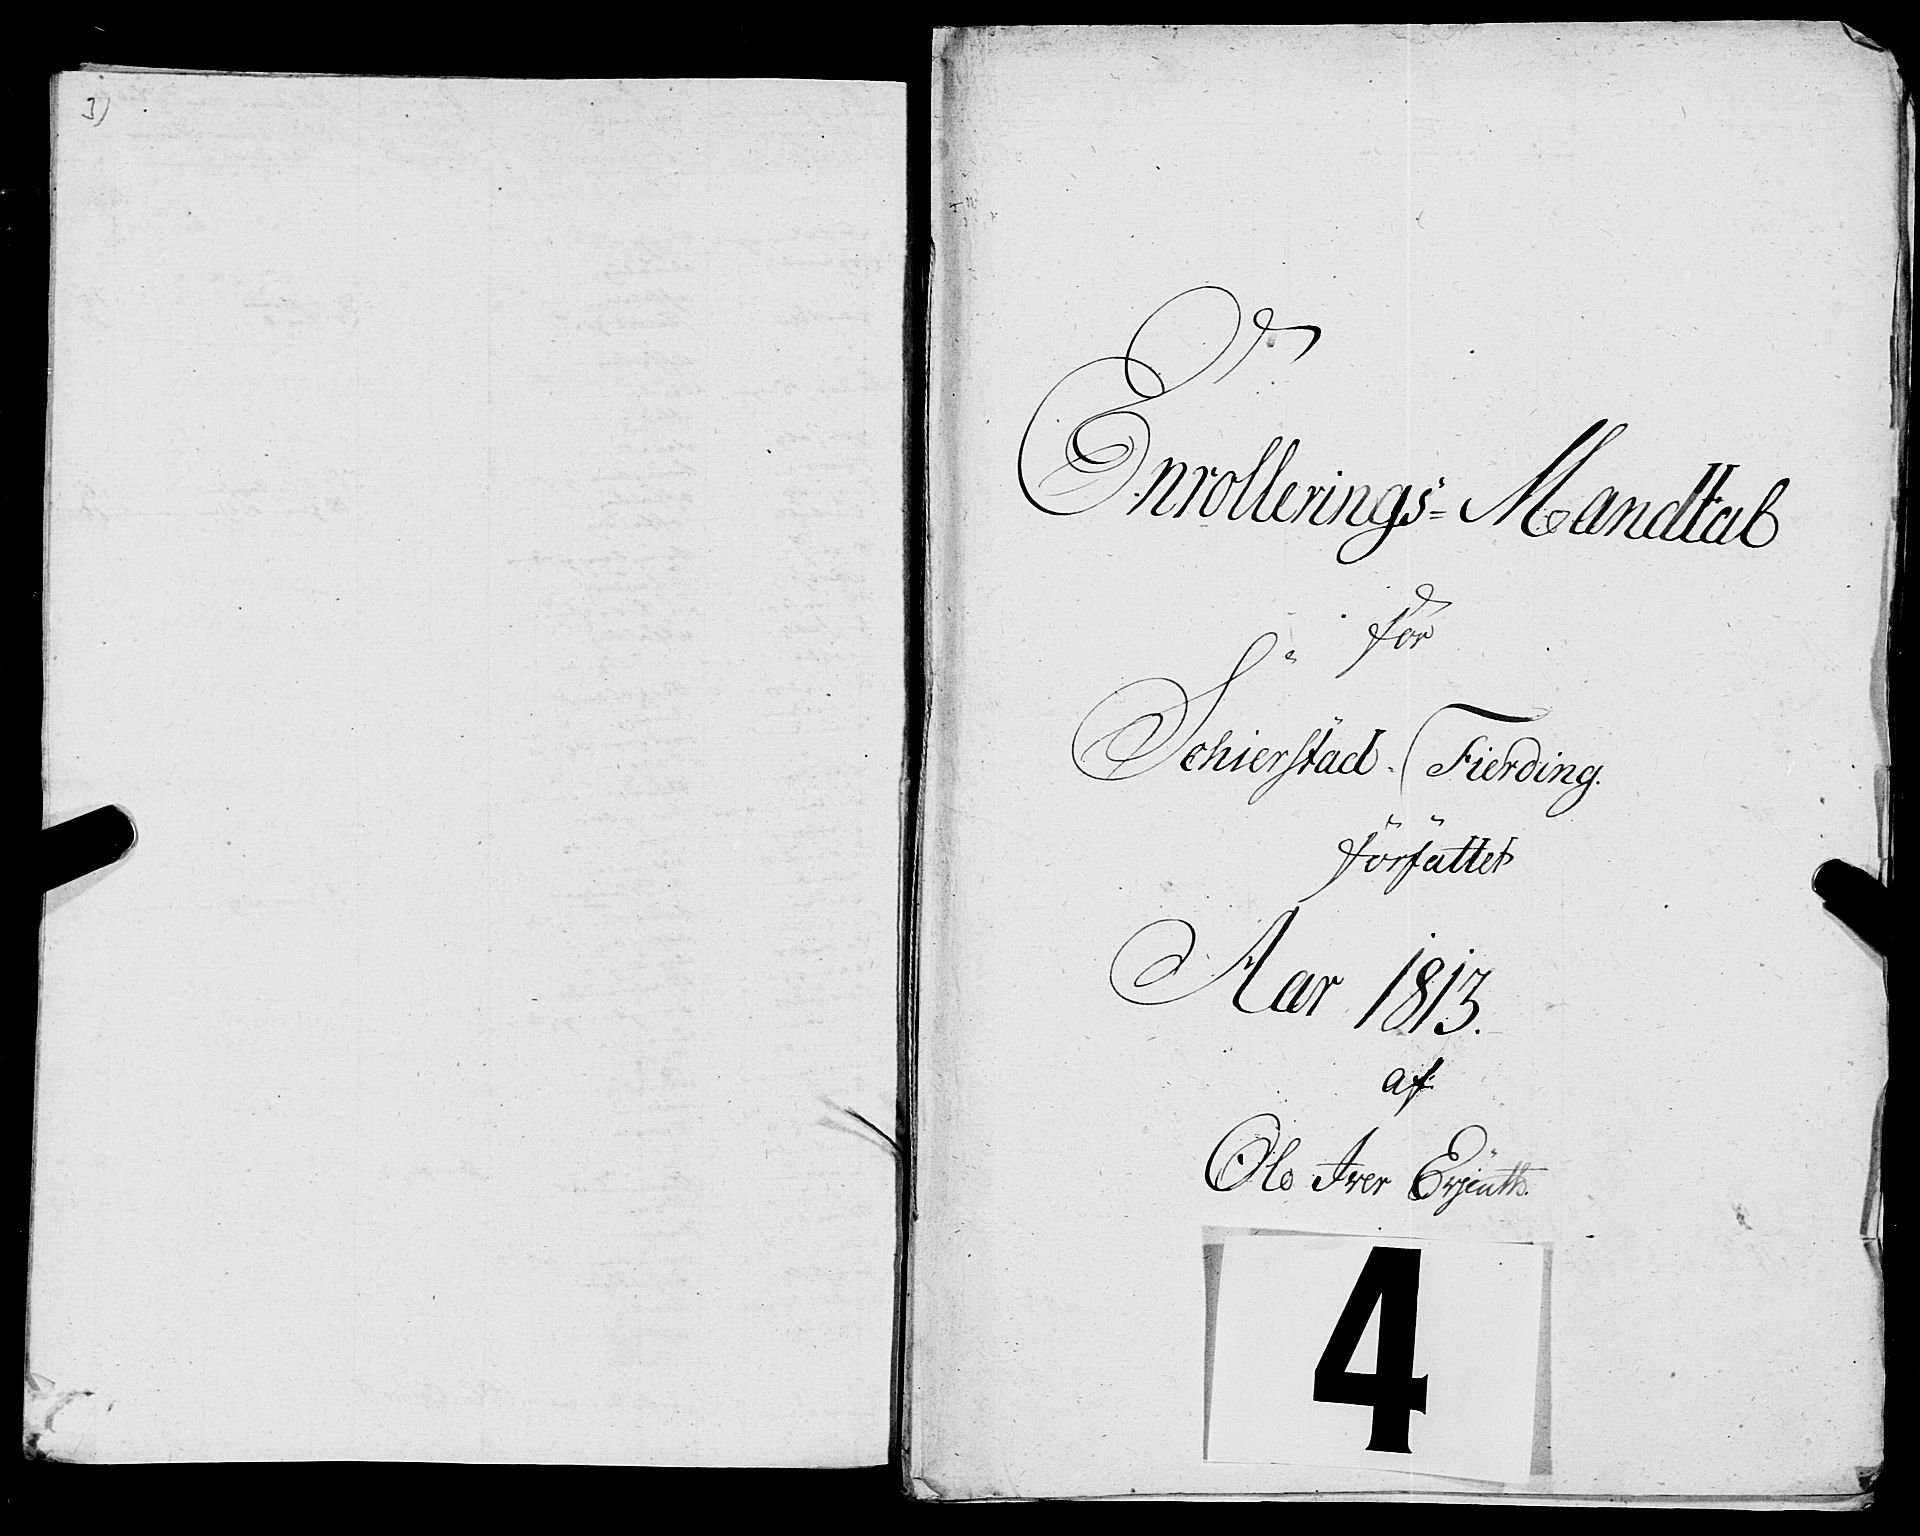 3)
Enrollerings= Mandtal
for
Schierstad Fierding.
forfattet
Aar 1813.
af
Ole Iver
4